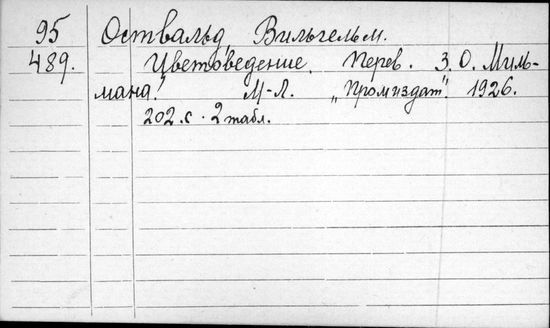 95 Оствальд, Вильгельм.
489. Цветоведение. Перев. З. О. Миль-
мана. М-Л. „Промиздат". 1926.
202 с. 2 табл.